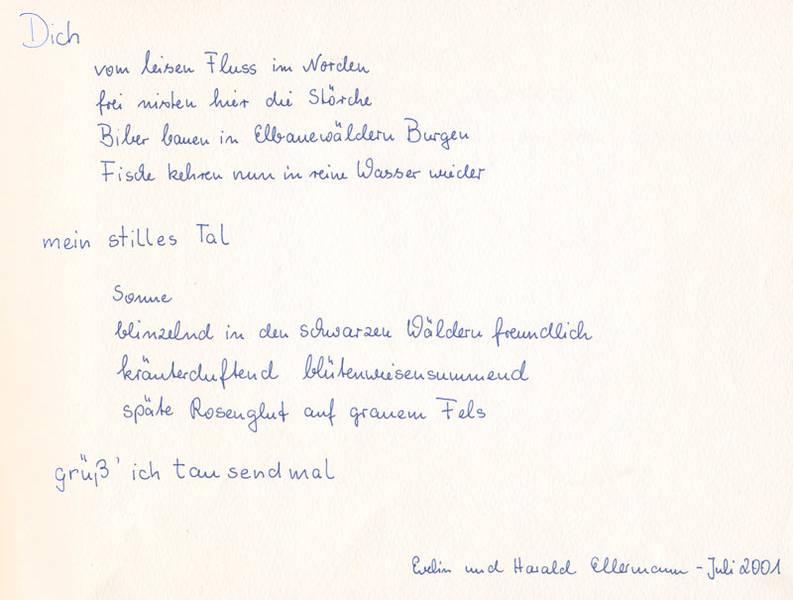 Dich
vom leisen Fluss im Norden
frei nisten hier die Störche
Biber bauen in Elbauewäldern Burgen
Fische kehren nun in reine Wasser wieder
mein stilles Tal
Sonne
blinzelnd in den schwarzen Wäldern freundlich
kräuterduftend blütenwiesensummend
späte Rosenglut auf grauem Fels
grüß' ich tausendmal
Evelin und Harald Ellermann - Juli 2001